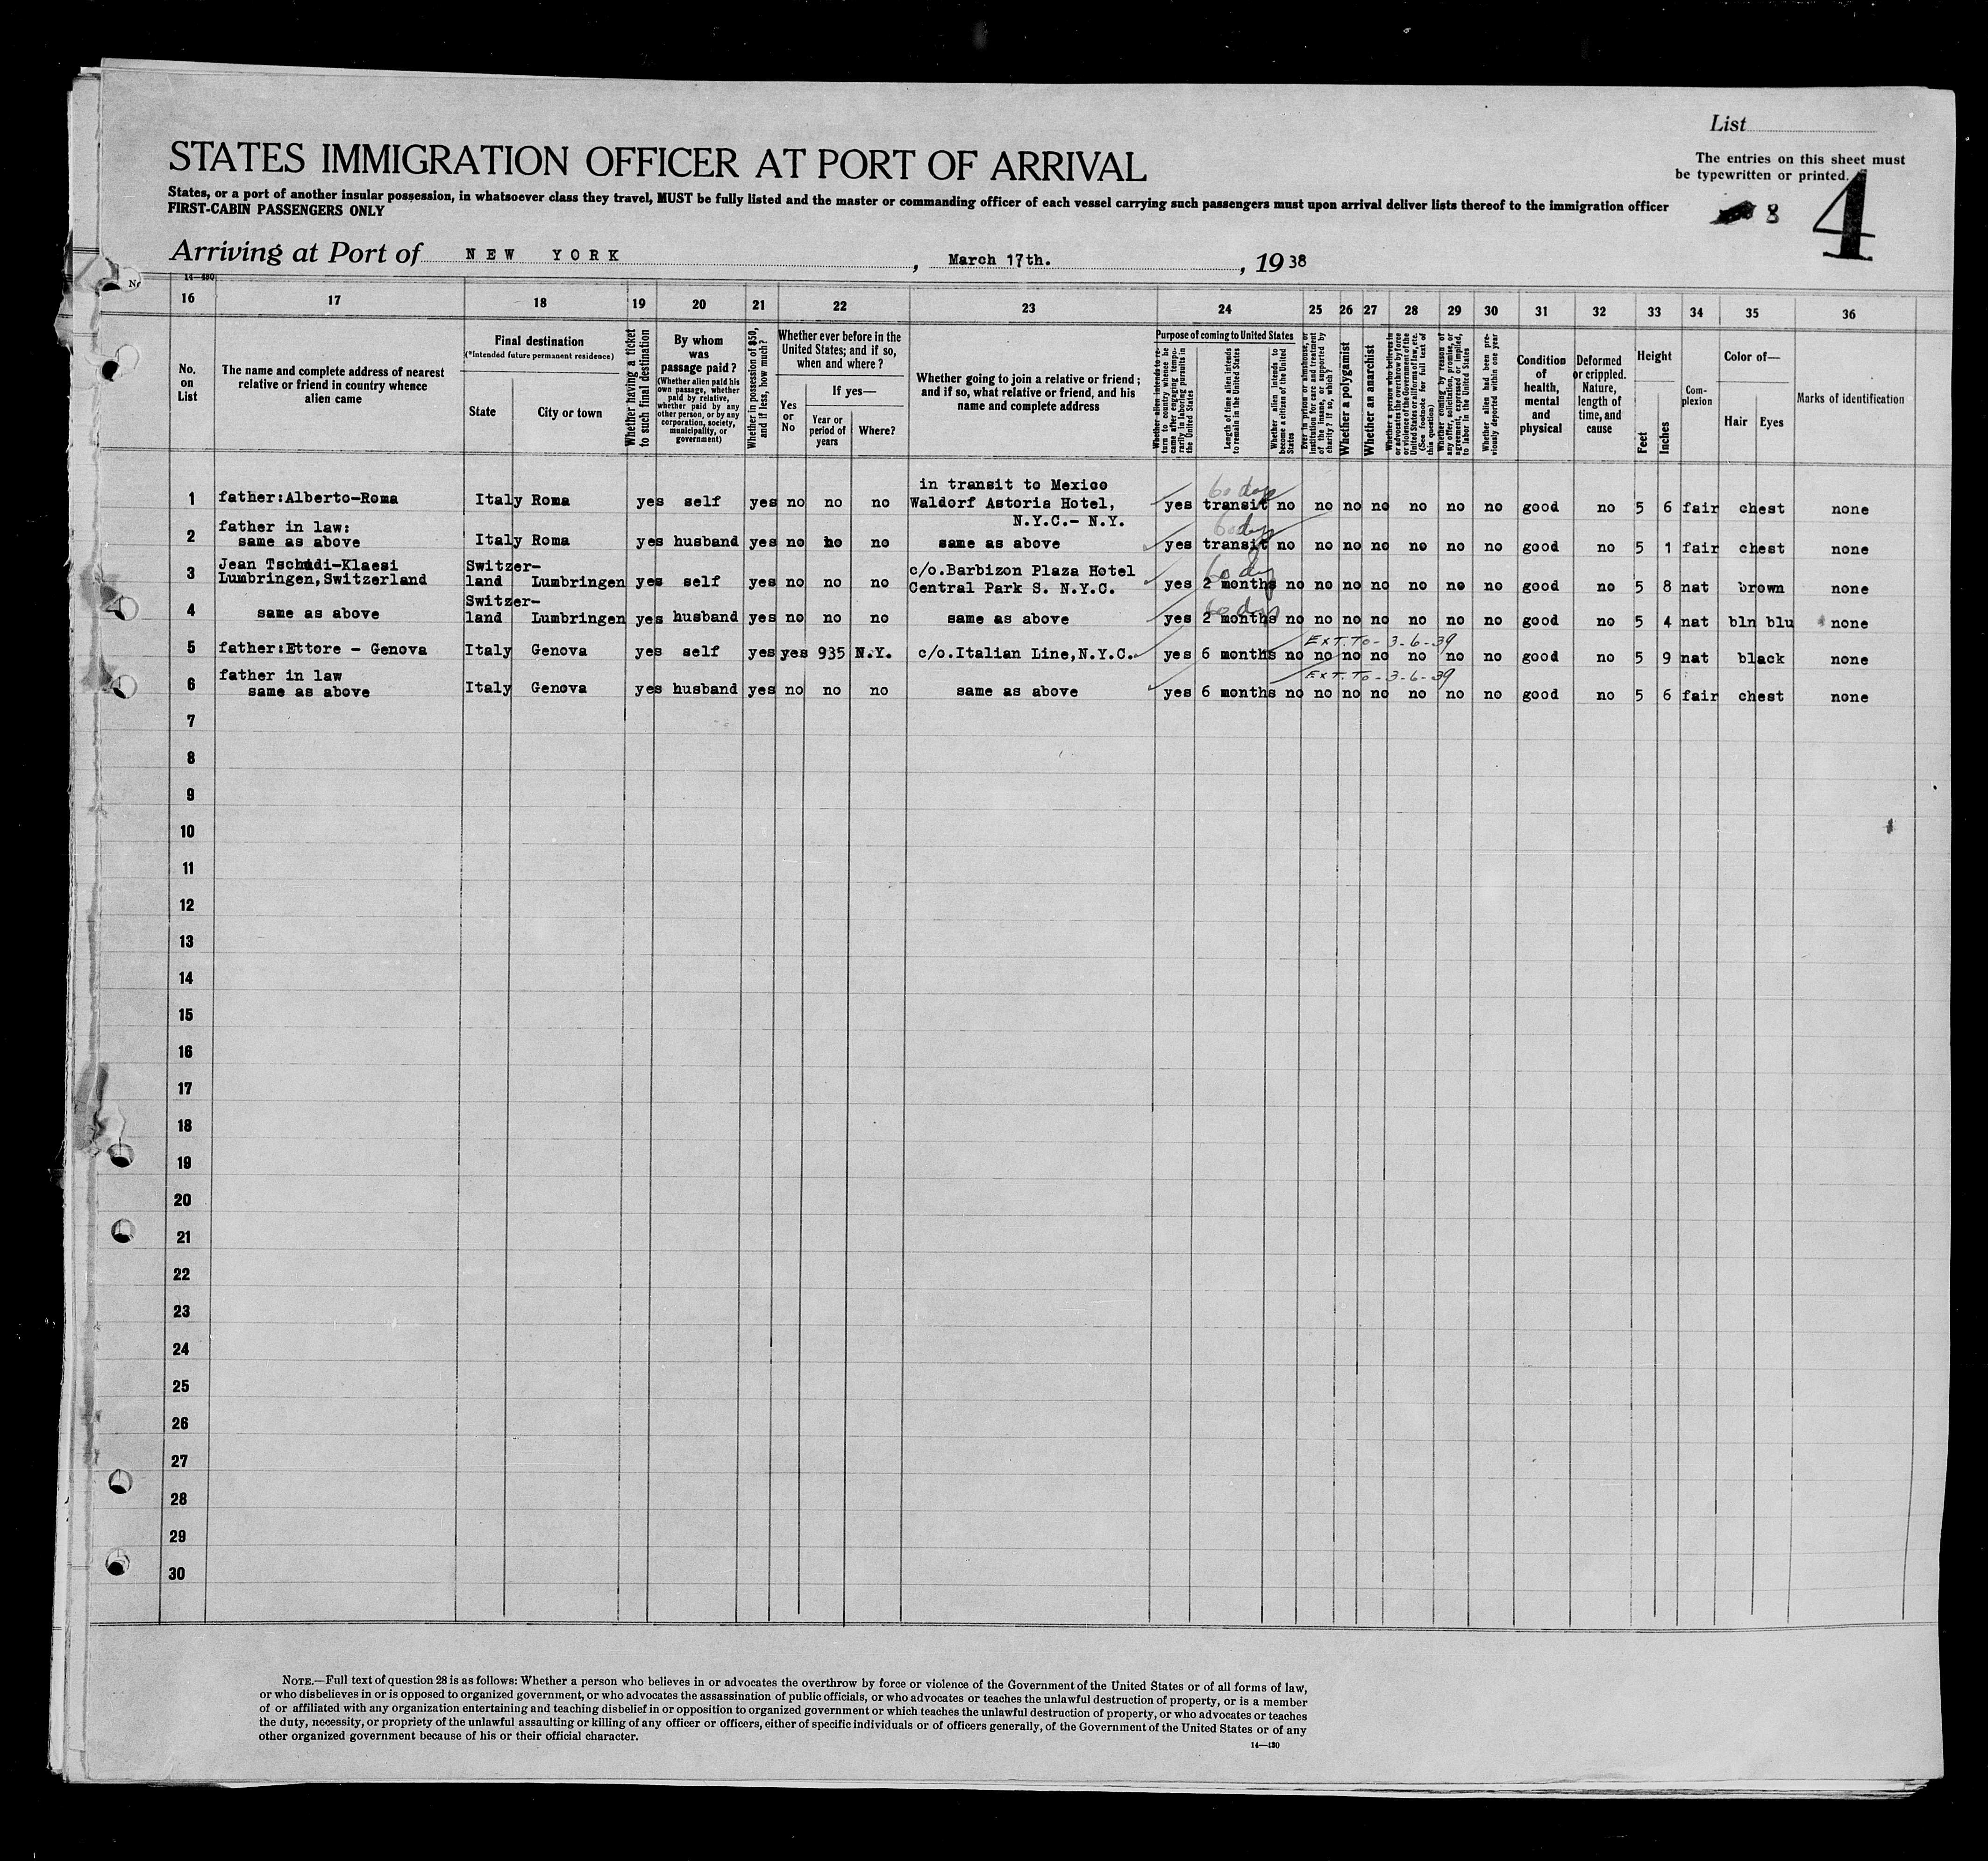 List
The entries on this sheet must
be typewritten or printed.
STATES IMMIGRATION OFFICER AT PORT OF ARRIVAL
States, or a port of another insular possession, in whatsoever class they travel, MUST be fully listed and the master or commanding officer of each vessel carrying such passengers must upon arrival deliver lists thereof to the immigration officer
FIRST-CABIN PASSENGERS ONLY
8 4
Arriving at Port of NEW YORK, March 17th., 1938
14—430
16 17 18 19 20 21 22 23 24 25 26 27 28 29 30 31 32 33 34 35 36
No. on List
The name and complete address of nearest relative or friend in country whence alien came
Final destination
(*Intended future permanent residence)
State
City or town
Whether having a ticket to such final destination
By whom was passage paid?
(Whether alien paid his own passage, whether paid by relative, whether paid by any other person, or by any corporation, society, municipality, or government)
Whether in possession of $50, and if less, how much?
Whether ever before in the United States; and if so, when and where?
Yes or No
If yes—
Year or period of years
Where?
Whether going to join a relative or friend; and if so, what relative or friend, and his name and complete address
Purpose of coming to United States
Whether alien intends to return to country whence he came after engaging temporarily in laboring pursuits in the United States
Length of time alien intends to remain in the United States
Whether alien intends to become a citizen of the United States
Ever in prison or almshouse, or institution for care and treatment of the insane, or supported by charity? If so, which?
Whether a polygamist
Whether an anarchist
Whether a person who believes in or advocates the overthrow by force or violence of the Government of the United States or all forms of law, etc. (See footnote for full text of this question)
Whether coming by reason of any offer, solicitation, promise, or agreement, expressed or implied, to labor in the United States
Whether alien had been previously deported within one year
Condition of health, mental and physical
Deformed or crippled. Nature, length of time, and cause
Height
Feet
Inches
Complexion
Color of—
Hair
Eyes
Marks of identification
in transit to Mexico 60 days
1 father:Alberto-Roma Italy Roma yes self yes no no no Waldorf Astoria Hotel, yes transit no no no no no no no good no 5 6 fair chest none
N.Y.C.- N.Y.
father in law:
2 same as above Italy Roma yes husband yes no no no same as above yes transit no no no no no no no good no 5 1 fair chest none
Jean Tschudi-Klaesi Switzer- c/o.Barbizon Plaza Hotel
3 Lumbringen,Switzerland land Lumbringen yes self yes no no no Central Park S. N.Y.C. yes 2 months no no no no no no no good no 5 8 nat brown none
Switzer-
4 same as above land Lumbringen yes husband yes no no no same as above yes 2 months no no no no no no no good no 5 4 nat bln blu none
EXT. To - 3-6-39
5 father:Ettore - Genova Italy Genova yes self yes yes 935 N.Y. c/o.Italian Line,N.Y.C. yes 6 months no no no no no no no good no 5 9 nat black none
father in law EXT. To - 3-6-39
6 same as above Italy Genova yes husband yes no no no same as above yes 6 months no no no no no no no good no 5 6 fair chest none
7
8
9
10
11
12
13
14
15
16
17
18
19
20
21
22
23
24
25
26
27
28
29
30
NOTE.—Full text of question 28 is as follows: Whether a person who believes in or advocates the overthrow by force or violence of the Government of the United States or of all forms of law,
or who disbelieves in or is opposed to organized government, or who advocates the assassination of public officials, or who advocates or teaches the unlawful destruction of property, or is a member
of or affiliated with any organization entertaining and teaching disbelief in or opposition to organized government or which teaches the unlawful destruction of property, or who advocates or teaches
the duty, necessity, or propriety of the unlawful assaulting or killing of any officer or officers, either of specific individuals or of officers generally, of the Government of the United States or of any
other organized government because of his or their official character.
14—430